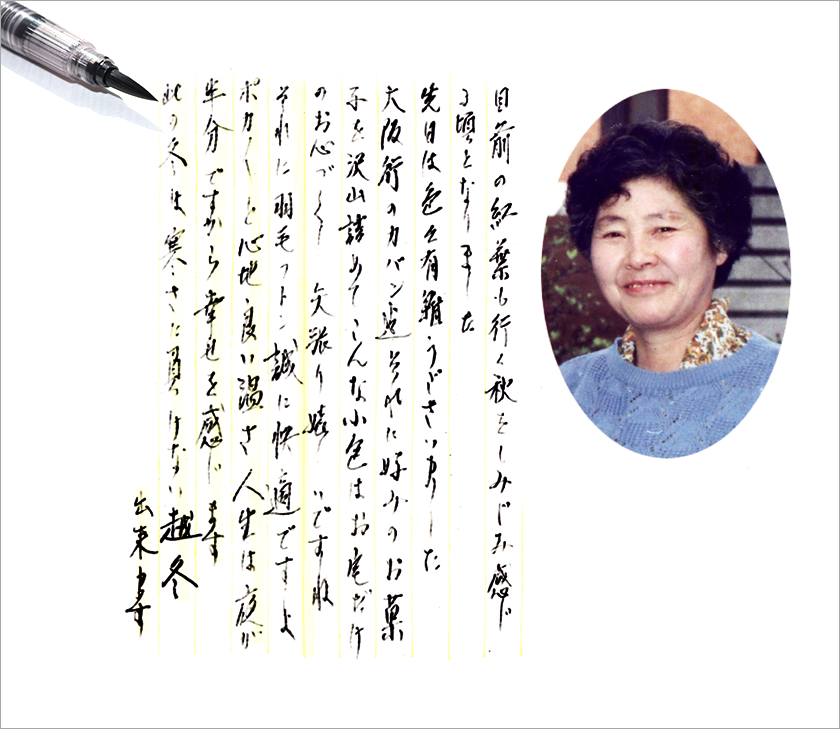 目前の紅葉も行く秋をしみじみ感じ
る頃となりました
先日は色々有難うございました
大阪行のカバン迄それに好みのお菓
子を沢山詰めてこんな小包はお宅だけ
のお心づくし 矢張り嬉しいですね
それに羽毛フトン誠に快適ですよ
ポカポカと心地良い温さ人生は夜が
半分ですから幸せを感じます
此の冬は寒さに負けない越冬
出来ます